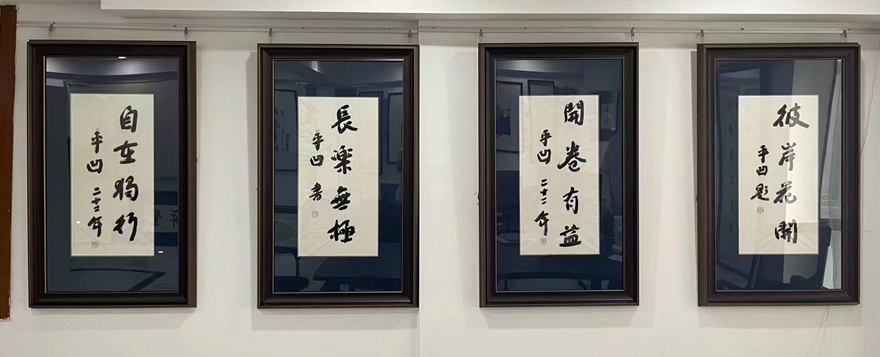 自在独行
平凹 二十二年
長樂無極
平凹 書
開卷有益
平凹 二十二年
彼岸花開
平凹題